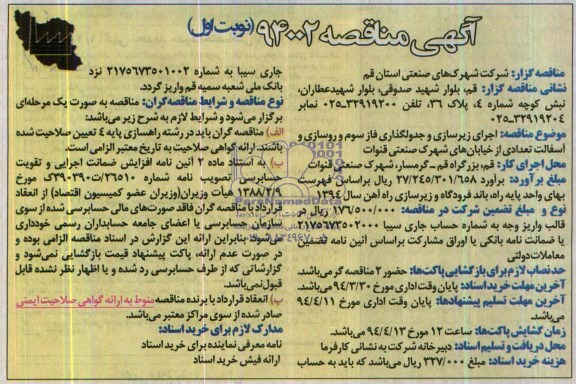 آگهی مناقصه ۹۴۰۰۲ (نوبت اول)
مناقصه گزار: شرکت شهرک‌های صنعتی استان قم
نشانی مناقصه گزار: قم، بلوار شهید صدوقی، بلوار شهیدعطاران،
نبش کوچه شماره ۴، پلاک ۳۶، تلفن ۳۲۹۱۹۲۰۰-۰۲۵ نمابر
۳۲۹۱۹۲۰۴-۰۲۵
موضوع مناقصه: اجرای زیرسازی و جدولگذاری فاز سوم و روسازی و
آسفالت تعدادی از خیابان‌های شهرک صنعتی قنوات
محل اجرای کار: قم، بزرگراه قم-گرمسار، شهرک صنعتی قنوات
مبلغ برآورد: برآورد ۲۷/۲۴۵/۳۰۱/۶۵۸ ریال براساس فهرست
بهای واحد پایه راه، باند فرودگاه و زیرسازی راه آهن سال ۱۳۹۴
نوع و مبلغ تضمین شرکت در مناقصه: ۱۷۶/۰۰۰/۰۰۰ ریال در
قالب واریز وجه به شماره حساب جاری سیبا ۲۱۷۵۶۷۳۵۰۲۰۰۰
یا ضمانت نامه بانکی یا اوراق مشارکت براساس آئین نامه تضمین
معاملات دولتی
حد نصاب لازم برای بازگشایی پاکت‌ها: حضور ۲ مناقصه گر می‌باشد.
آخرین مهلت خرید اسناد: پایان وقت اداری مورخ ۹۴/۳/۳۰ می‌باشد.
آخرین مهلت تسلیم پیشنهادها: پایان وقت اداری مورخ ۹۴/۴/۱۱
می‌باشد.
زمان گشایش پاکت‌ها: ساعت ۱۲ مورخ ۹۴/۴/۱۳ می‌باشد.
محل دریافت و تسلیم اسناد: دبیرخانه شرکت به نشانی کارفرما
هزینه خرید اسناد: مبلغ ۳۲۷/۰۰۰ ریال می‌باشد که باید به حساب
جاری سیبا به شماره ۲۱۷۵۶۷۳۵۰۱۰۰۲ نزد
بانک ملی شعبه سمیه قم واریز گردد.
نوع مناقصه و شرایط مناقصه‌گران: مناقصه به صورت یک مرحله‌ای
برگزار می‌شود و شرایط لازم به شرح زیر می‌باشد:
الف) مناقصه گران باید در رشته راهسازی پایه ۴ تعیین صلاحیت شده
باشند. ارائه گواهی صلاحیت به تاریخ معتبر الزامی است.
ب) به استناد ماده ۲ آئین نامه افزایش ضمانت اجرایی و تقویت
حسابرسی (تصویب نامه شماره ۲۶۵۱۰/ت۳۹۰۳۹ک مورخ
۱۳۸۸/۲/۹ هیأت وزیران(وزیران عضو کمیسیون اقتصاد) از انعقاد
قرارداد با مناقصه گران فاقد صورت‌های مالی حسابرسی شده از سوی
سازمان حسابرسی یا اعضای جامعه حسابداران رسمی خودداری
می‌شود. بنابراین ارائه این گزارش در اسناد مناقصه الزامی بوده و
در صورت عدم ارائه، پاکت پیشنهاد قیمت بازگشایی نمی‌شود و
گزارشاتی که از طرف حسابرسی رد شده و یا اظهار نظر نشده قابل
قبول نمی‌باشد.
پ) انعقاد قرارداد با برنده مناقصه منوط به ارائه گواهی صلاحیت ایمنی
صادر شده از سوی مراکز معتبر می‌باشد.
مدارک لازم برای خرید اسناد:
نامه معرفی نماینده برای خرید اسناد
ارائه فیش خرید اسناد
ParsNamadData